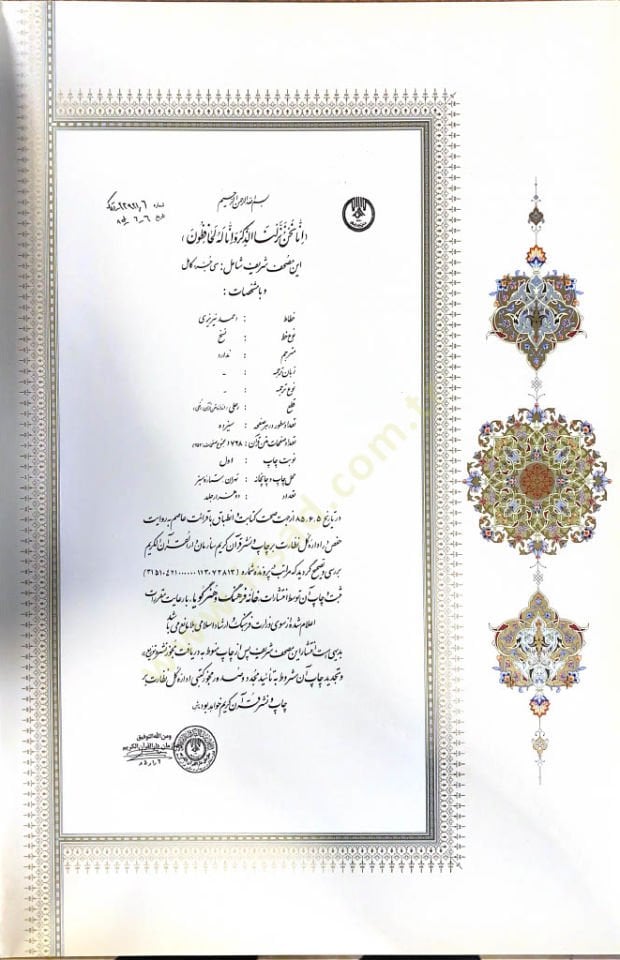 بسم الله الرحمن الرحیم
شماره
تاریخ
(اِنّا نَحنُ نَزَّلنَا الذِّکرَ وَاِنّا لَهُ لَحافِظُونَ)
این مصحف شریف شامل: سی جزء کامل
و با مشخصات:
خطاط : احمد نیریزی
نوع خط : نسخ
مترجم : ندارد
زبان ترجمه : -
نوع ترجمه : -
قطع : رحلی
تعداد سطور در هر صفحه : سیزده
تعداد صفحات متن قرآن:
نوبت چاپ : اول
محل چاپ و چاپخانه : تهران، ستاره سبز
تعداد : دو هزار جلد
در تاریخ ۸۵،۶،۵ از جهت صحت کتابت و انطباق با قرائت عاصم به روایت
حفص در اداره کل نظارت بر چاپ و نشر قرآن کریم سازمان دارالقرآن الکریم
بررسی و تصحیح گردید که مراتب با پرونده و شماره (
ثبت و چاپ آن توسط انتشارات، خانه فرهنگ و هنر گویا، با رعایت مقررات
اعلام شده از سوی وزارت فرهنگ و ارشاد اسلامی بلامانع می باشد
بدیهی است انتشار این مصحف شریف پس از چاپ منوط به دریافت مجوز نشر و توزیع
و تجدید چاپ آن مشروط به تأیید مجدد و صدور مجوز کتبی اداره کل نظارت بر
چاپ و نشر قرآن کریم خواهد بود
ومن الله التوفیق
سازمان دارالقرآن الکریم